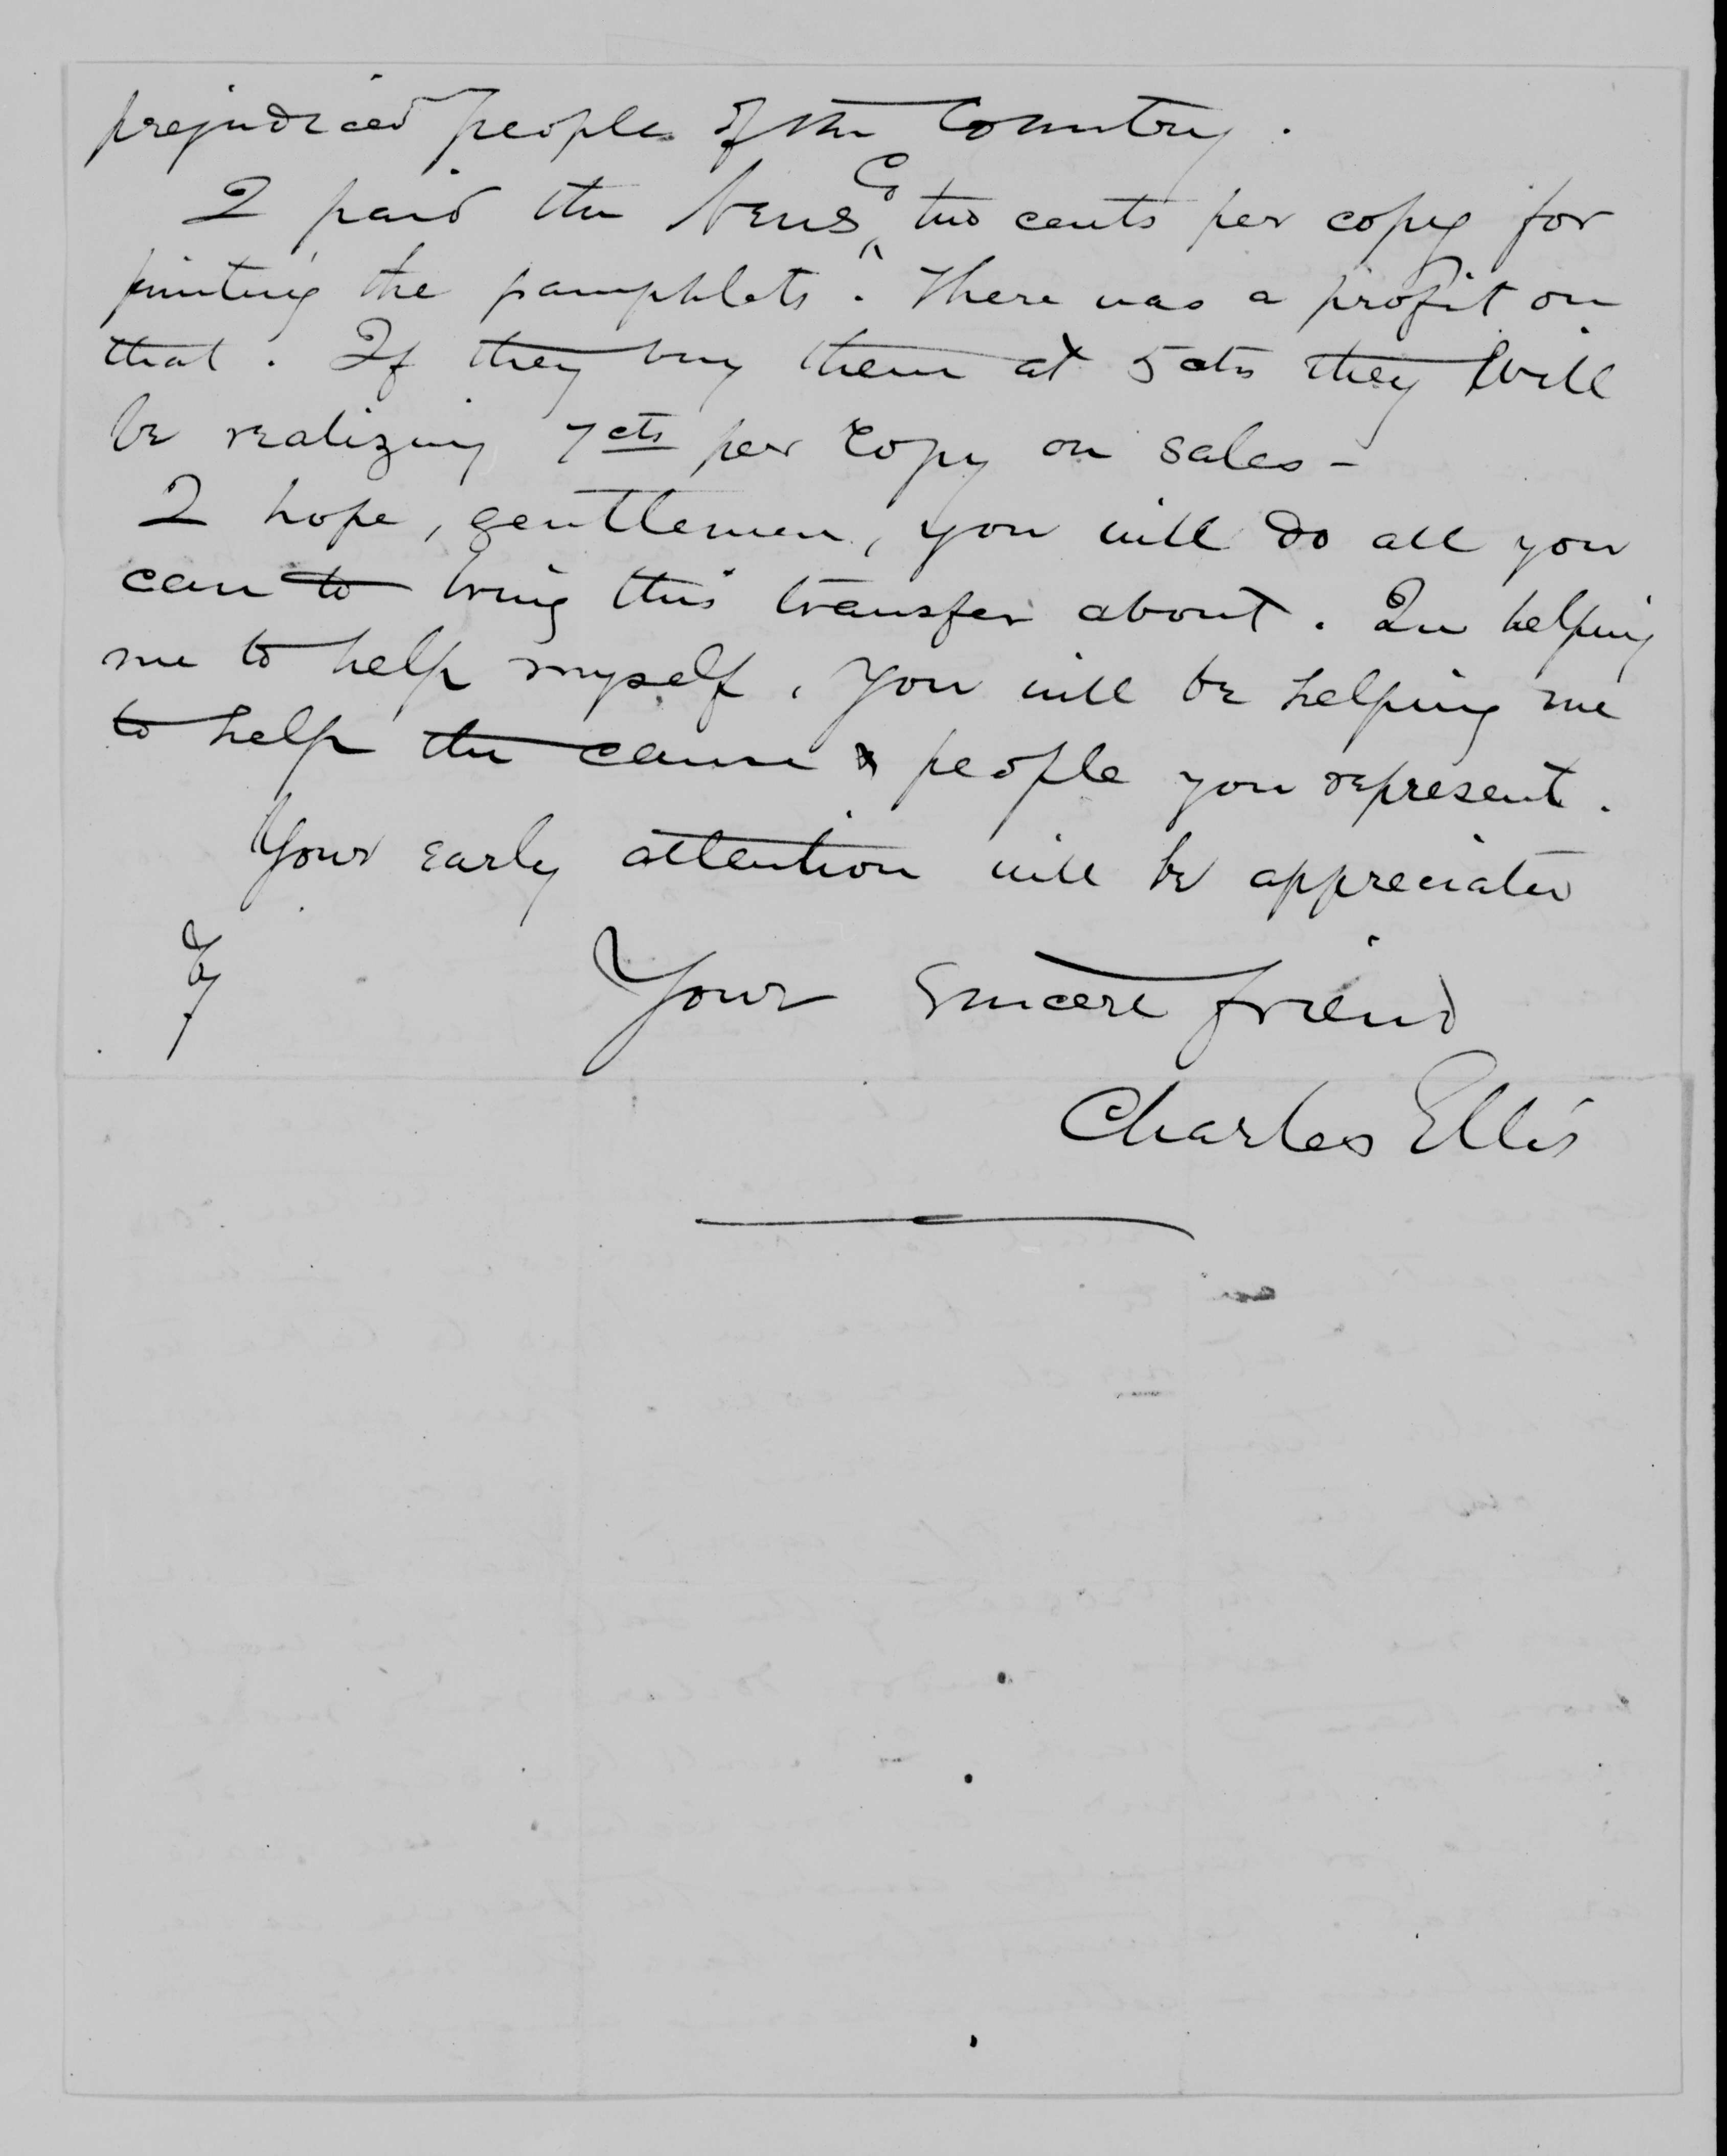 prejudiced people of the Country.
I paid the News Co two cents per copy for
printing the pamphlets. There was a profit on
that. If they buy them at 5 cts they will
be realizing 7cts per copy on sales –
I hope, gentlemen, you will do all you
can to bring this transfer about. In helping
me to help myself, you will be helping me
to help the cause & people you represent.
Your early attention will be appreciated
by
Your sincere friend
Charles Ellis